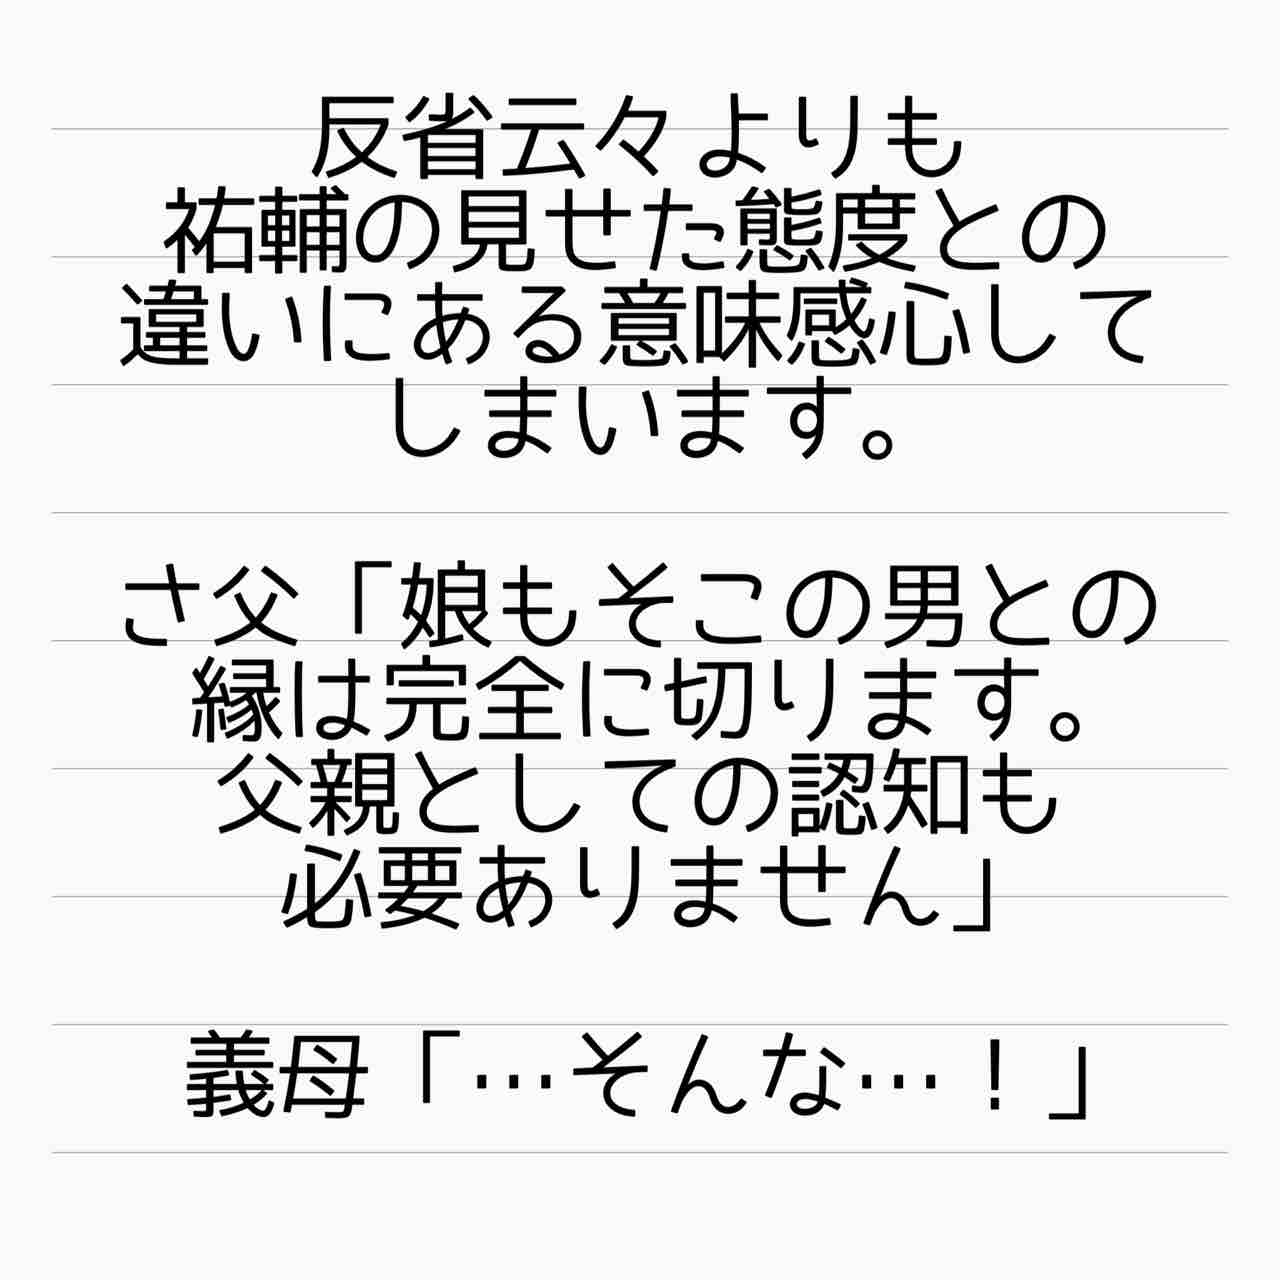 反省云々よりも
祐輔の見せた態度との
違いにある意味感心して
しまいます。
さ父「娘もそこの男との
縁は完全に切ります。
父親としての認知も
必要ありません」
義母「…そんな…！」